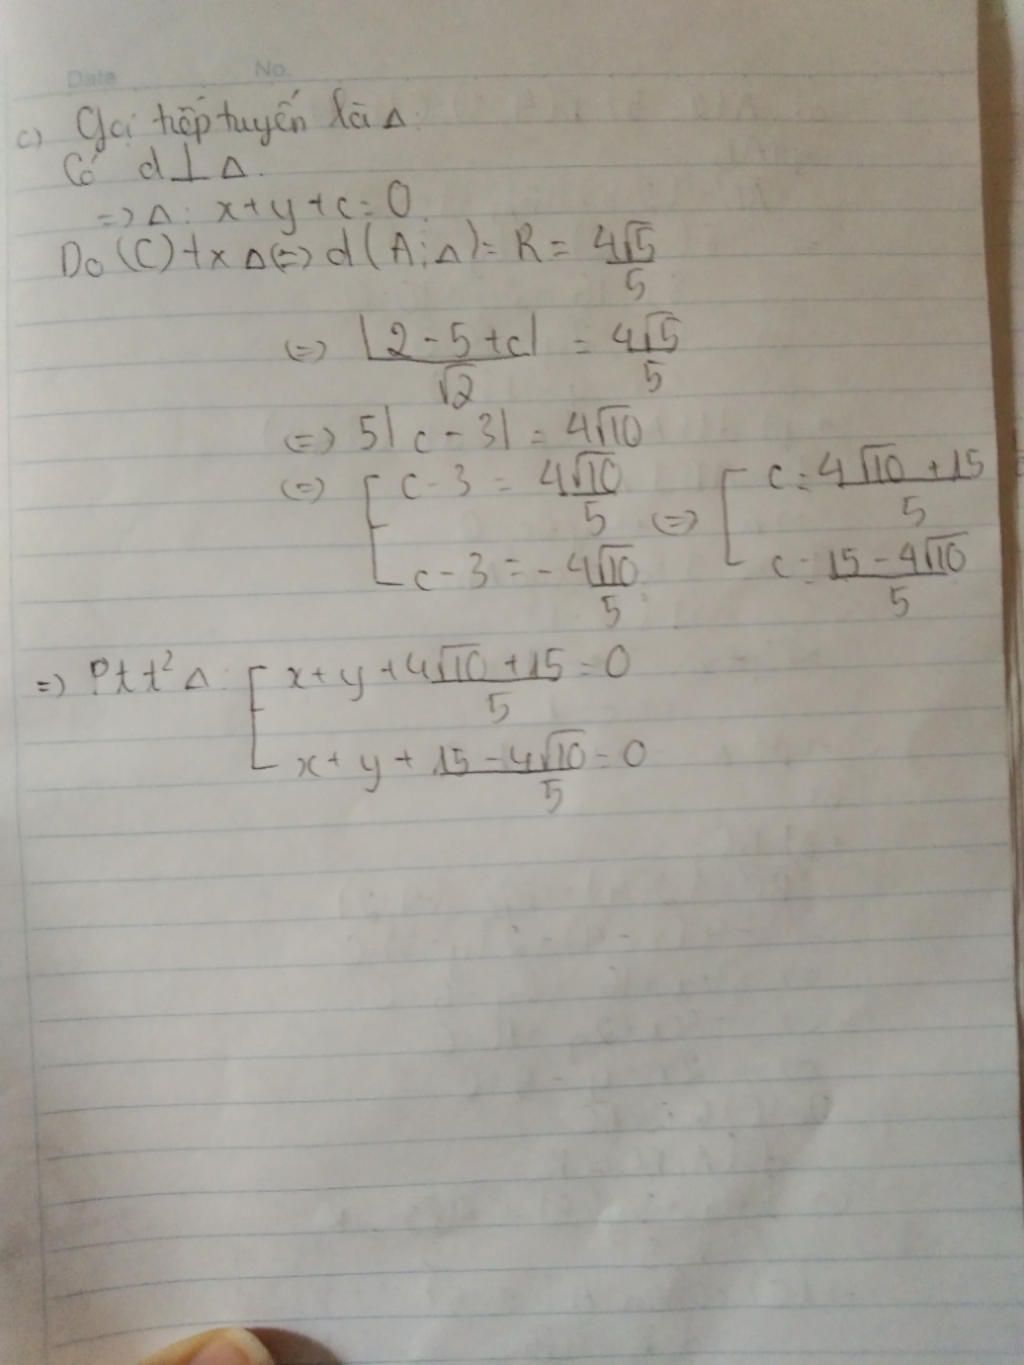 Date No.
c) Gọi tiếp tuyến là Δ.
Có d ⊥ Δ.
=> Δ: x+y+c=0.
Do (C) tx Δ <=> d(A;Δ) = R = 4√5/5
<=> |2-5+c|/√2 = 4√5/5
<=> 5|c-3| = 4√10
<=> [ c-3 = 4√10/5 <=> [ c = (4√10+15)/5
c-3 = -4√10/5 c = (15-4√10)/5
=> Pt t² Δ: [ x+y+(4√10+15)/5=0
x+y+(15-4√10)/5=0